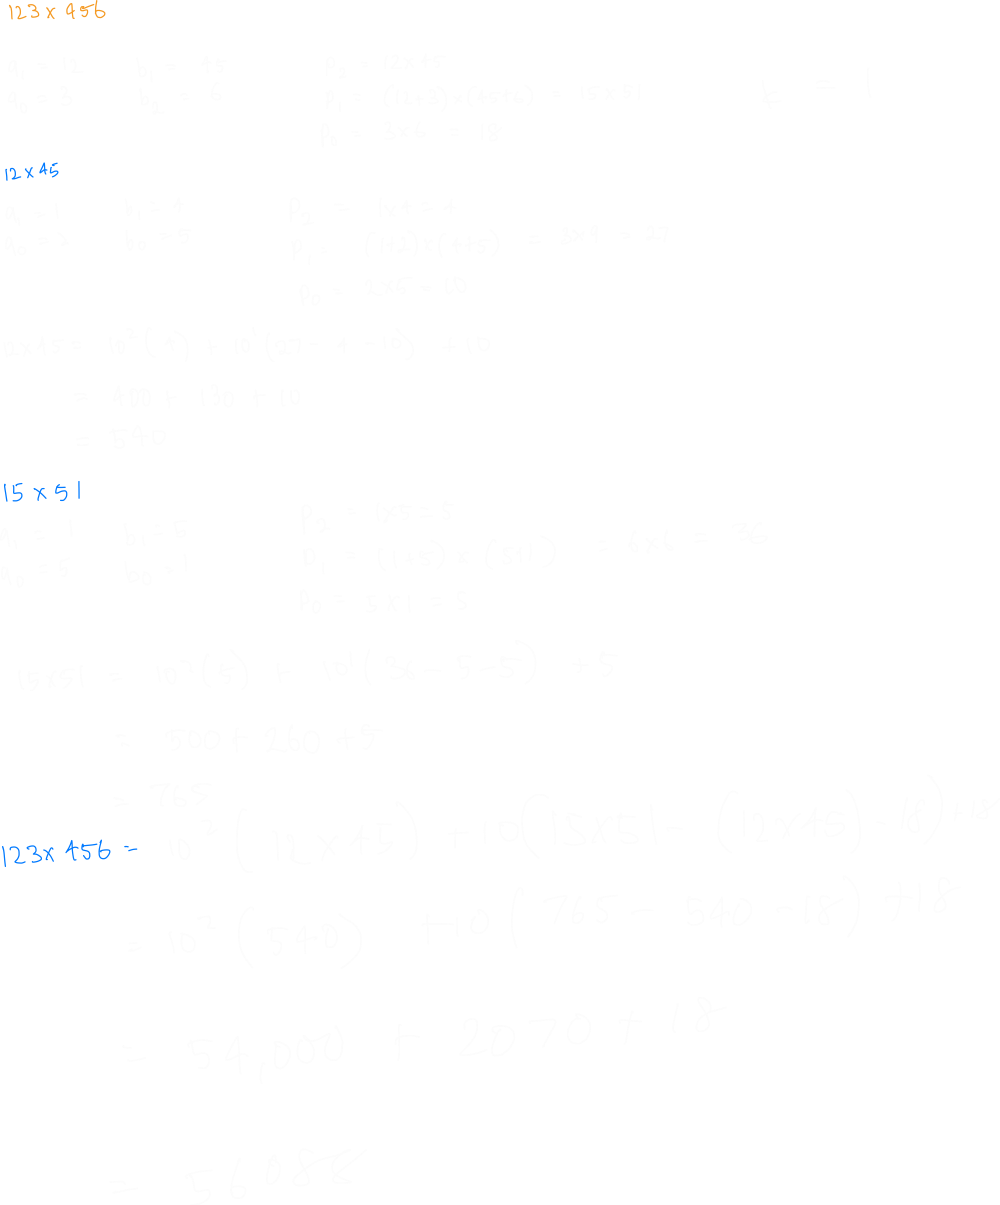 123 x 456
a1 = 12 b1 = 45 P2 = 12x45
a0 = 3 P1 = (12+3) x (45+6) = 15x51 = 1
= 3x6 = 18
12 x 45
P2 = 1x4 = 4
P1 = (1+2)x(4+5) = 3x9 = 27
P0 = 2x5 = 10
= 10² (4) + 10¹ (27 - 4 - 10) + 10
= 400 + 130 + 10
= 540
15 x 51
a1 = 1 b1 = 5 P2 = 1x5 = 5
a0 = 5 b0 = 1 P1 = (1+5) x (5+1) = 6x6 = 36
P0 = 5x1 = 5
15x51 = 10² (5) + 10¹ (36 - 5 - 5) + 5
= 500 + 260 + 5
= 765
123x 456 = 10² (12 x 45) + 10 (15x51 - (12x45) - 18) + 18
= 10² (540) + 10 (765 - 540 - 18) + 18
= 54,000 + 2070 + 18
= 56088